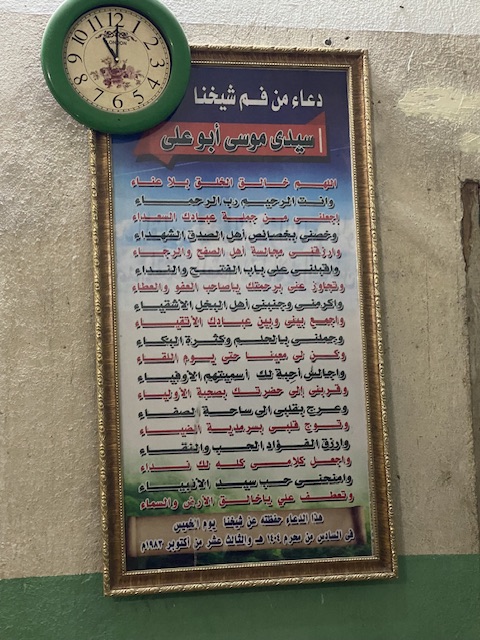 12
1
2
3
4
5
6
7
8
9
10
11
LONDON
دعاء من فم شيخنا
سيدى موسى أبو على
اللهم خالق الخلق بلا عناء
وانت الرحيم رب الرحماء
إجعلنى من جملة عبادك السعداء
وخصنى بخصائص أهل الصدق الشهداء
وارزقنى مجالسة أهل الصفح والرجاء
واقبلنى على باب الفتح والنداء
وتجاوز عنى برحمتك ياصاحب العفو والعطاء
واكرمنى وجنبنى أهل البخل الأشقياء
واجمع بينى وبين عبادك الأتقياء
وجملنى بالحلم وكثرة البكاء
وكن لى معينا حتى يوم اللقاء
واجالس أحبة لك أسميتهم الاوفياء
وقربنى إلى حضرتك بصحبة الاولياء
وعرج بقلبى الى ساحة الصفاء
وتوج قلبى بسرمدية الضياء
وارزق الفؤاد الحب والنقاء
واجعل كلامى كله لك نداء
وامنحنى حب سيد الأنبياء
وتعطف علي ياخالق الارض والسماء
هذا الدعاء حفظته عن شيخنا يوم الخميس
فى السادس من محرم ١٤٠٤ هـ والثالث عشر من أكتوبر ١٩٨٣م